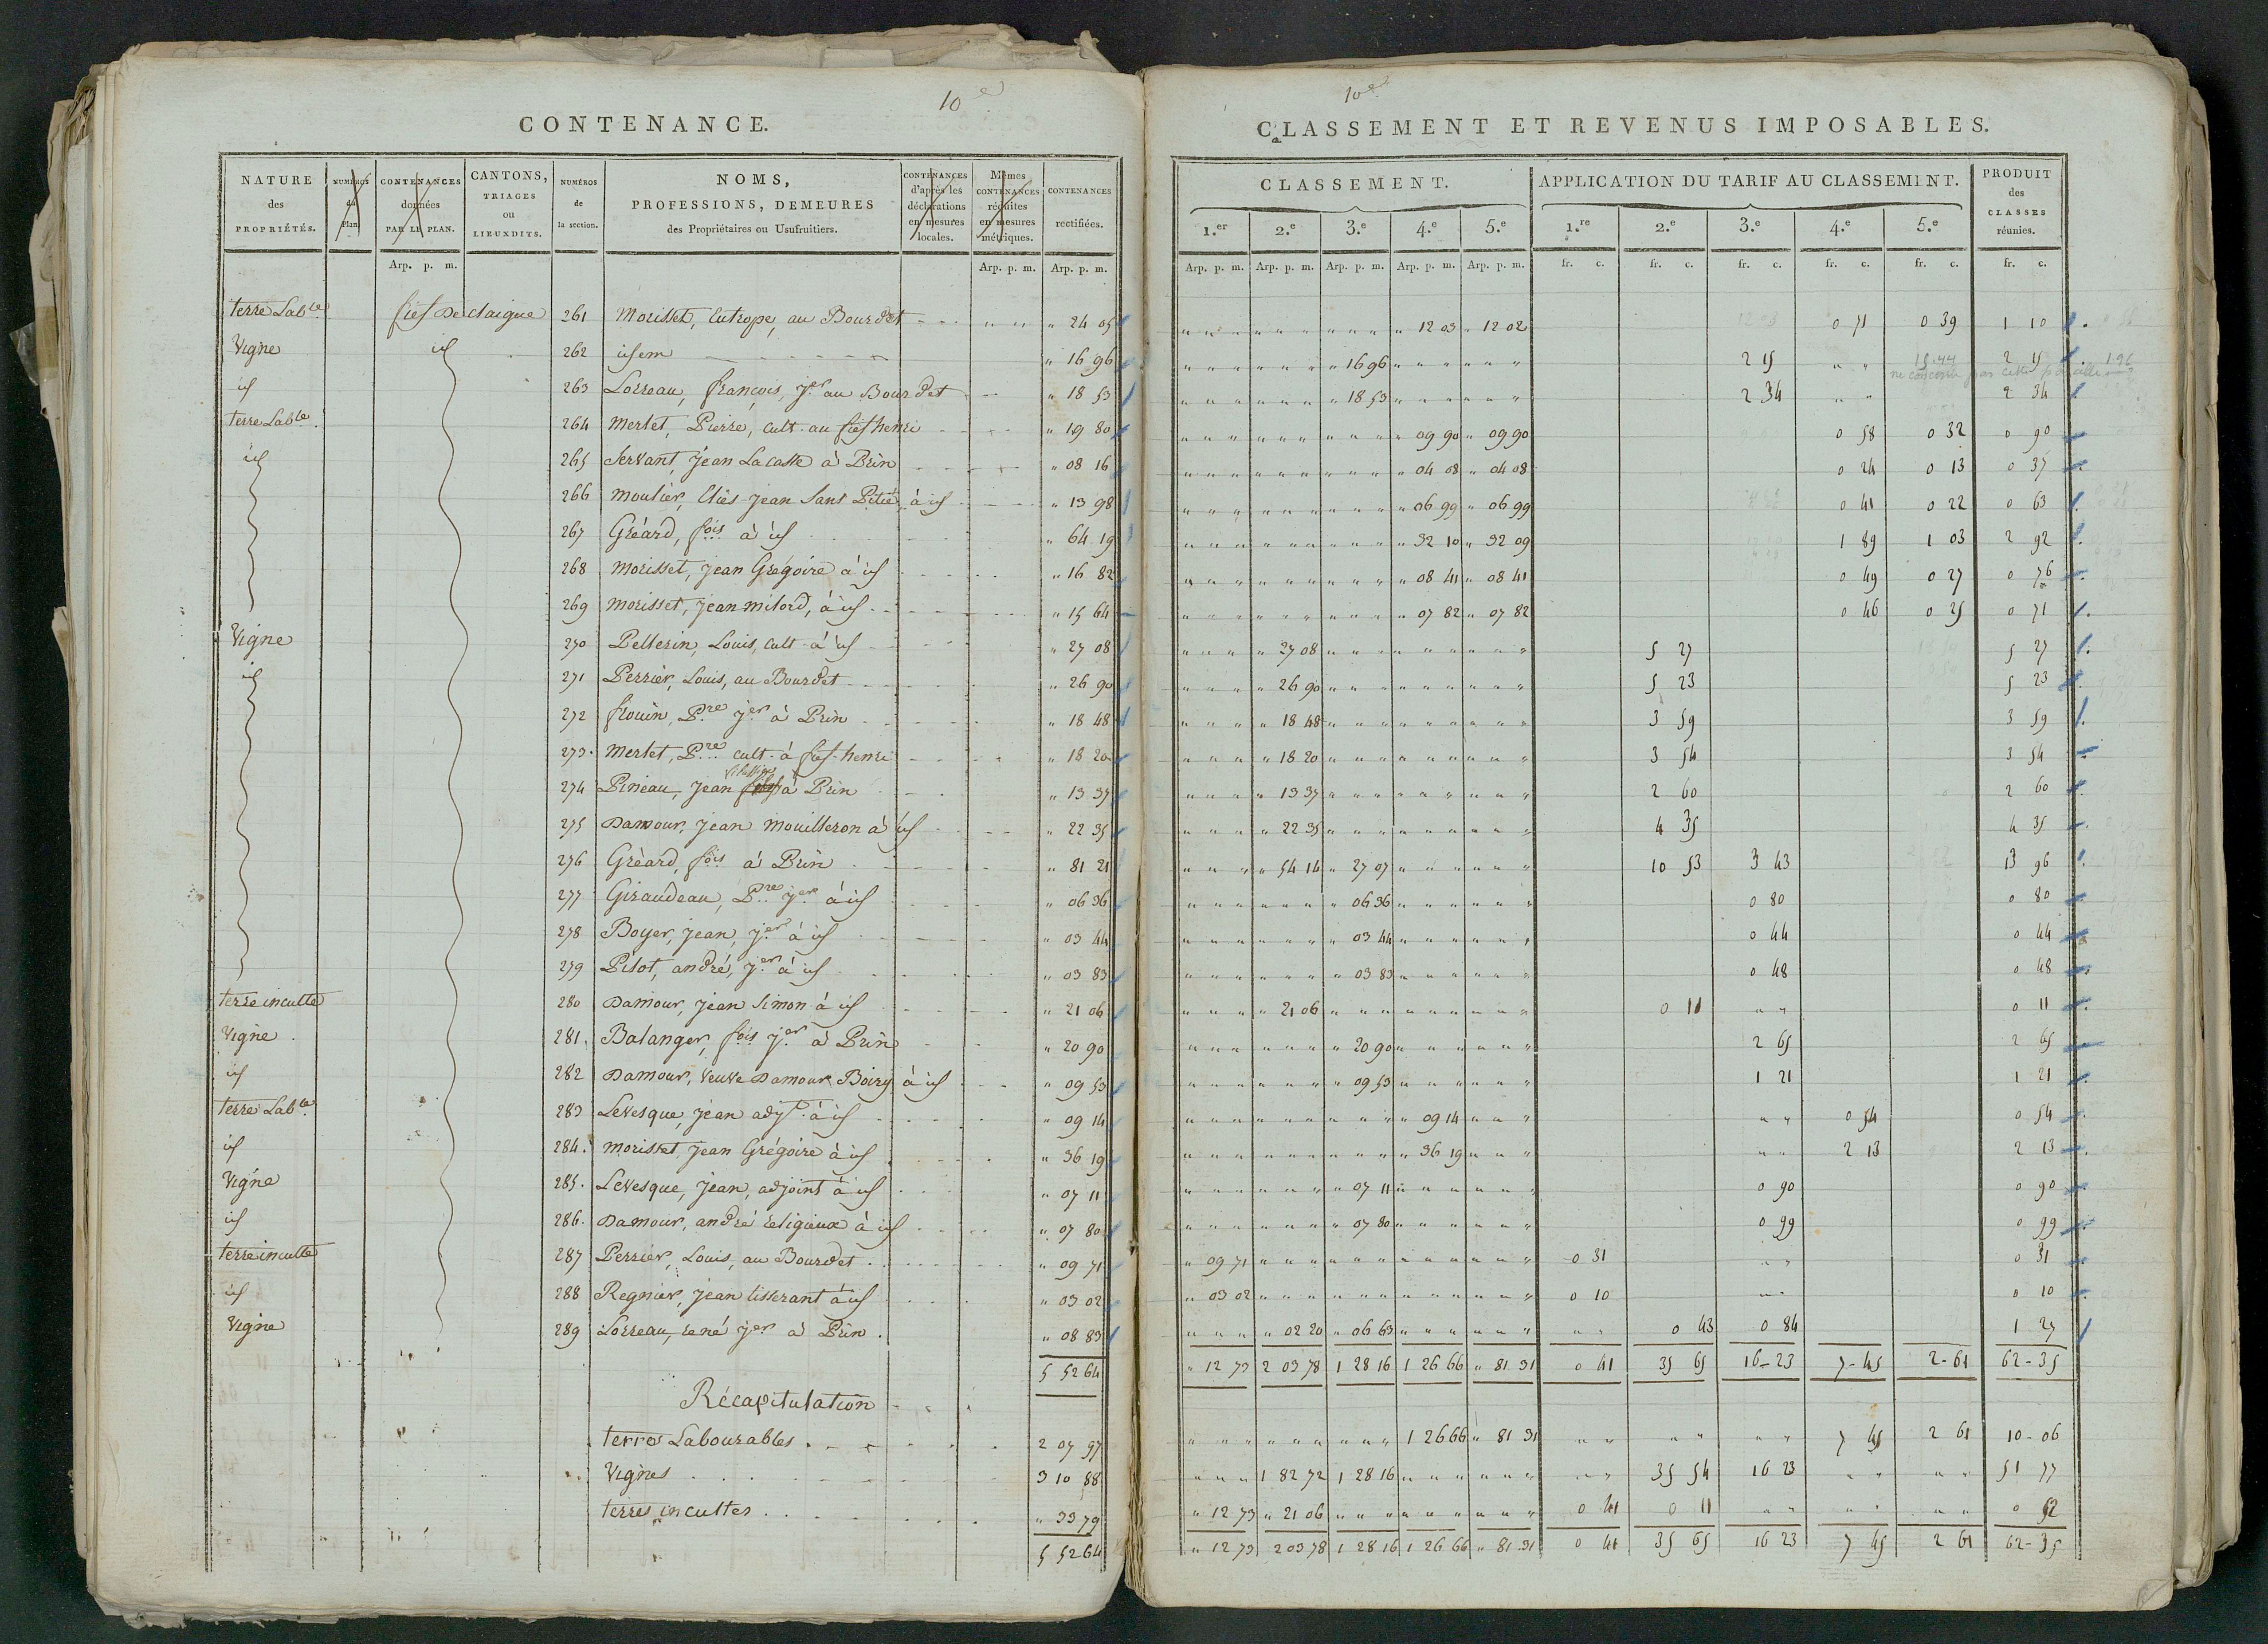 10e
CONTENANCE.
NATURE des PROPRIÉTÉS. | NUMÉROS du Plan. | CONTENANCES données PAR LE PLAN. | CANTONS, TRIAGES ou LIEUXDITS. | NUMÉROS de la section. | NOMS, PROFESSIONS, DEMEURES des Propriétaires ou Usufruitiers. | CONTENANCES d'après les déclarations en mesures locales. | Mêmes CONTENANCES réduites en mesures métriques. | CONTENANCES rectifiées.
Arp. p. m. | Arp. p. m. | Arp. p. m.
terre Lable | fief De claigue | 261 | Morisset, Eutrope, au Bourdet | " 24 05
Vigne | id | 262 | idem | " 16 96
id | 263 | Lorreau, françois, jer au Bourdet | " 18 53
terre Lable | 264 | Merlet, Pierre, cult. au fief henri | " 19 80
id | 265 | Servant, jean Lacasse à Brin | " 08 16
266 | Moulier, Elies jean Sans Pitié, à id | " 13 98
267 | Gréard, fois à id | " 64 19
268 | Morisset, jean Grégoire à id | " 16 82
269 | Morisset, jean milord, à id | " 15 64
Vigne | 270 | Pellerin, Louis, cult à id | " 27 08
id | 271 | Perrier, Louis, au Bourdet | " 26 90
272 | frouin, Pre jer à Brin | " 18 48
273 | Merlet, Pre cult. à fief-henri | " 18 20
274 | Pineau, jean à Brin | " 13 37
275 | Damour, jean Mouilleron à id | " 22 35
276 | Gréard, fois à Brin | " 81 21
277 | Giraudeau, Pre jer à id | " 06 36
278 | Boyer, jean, jer à id | " 03 44
279 | Pilot, andré, jer à id | " 03 83
terre inculte | 280 | Damour, jean Simon à id | " 21 06
Vigne | 281 | Balanger, fois jer à Brin | " 20 90
id | 282 | Damour, Veuve Damour Boizy à id | " 09 53
terre Lable | 283 | Levesque, jean adjt à id | " 09 14
id | 284 | Morisset, jean Grégoire à id | " 36 19
Vigne | 285 | Levesque, jean, adjoint à id | " 07 11
id | 286 | Damour, andré religieux à id | " 07 80
terre inculte | 287 | Perrier, Louis, au Bourdet | " 09 71
id | 288 | Regnier, jean tisserant à id | " 03 02
Vigne | 289 | Lorreau, rené jer à Brin | " 08 83
5 52 64
Récapitulation
terres Labourables | 2 07 97
Vignes | 3 10 88
terres incultes | " 33 79
5 52 64
10e
CLASSEMENT ET REVENUS IMPOSABLES.
CLASSEMENT. | APPLICATION DU TARIF AU CLASSEMENT. | PRODUIT des CLASSES réunies.
1.er | 2.e | 3.e | 4.e | 5.e | 1.re | 2.e | 3.e | 4.e | 5.e
Arp. p. m. | Arp. p. m. | Arp. p. m. | Arp. p. m. | Arp. p. m. | fr. c. | fr. c. | fr. c. | fr. c. | fr. c. | fr. c.
" 12 03 | " 12 02 | 0 71 | 0 39 | 1 10
" 16 96 | 2 15 | 2 15
" 18 53 | 2 34 | 2 34
" 09 90 | " 09 90 | 0 58 | 0 32 | 0 90
" 04 08 | " 04 08 | 0 24 | 0 13 | 0 37
" 06 99 | " 06 99 | 0 41 | 0 22 | 0 63
" 32 10 | " 32 09 | 1 89 | 1 03 | 2 92
" 08 41 | " 08 41 | 0 49 | 0 27 | 0 76
" 07 82 | " 07 82 | 0 46 | 0 25 | 0 71
" 27 08 | 5 27 | 5 27
" 26 90 | 5 23 | 5 23
" 18 48 | 3 59 | 3 59
" 18 20 | 3 54 | 3 54
" 13 37 | 2 60 | 2 60
" 22 35 | 4 35 | 4 35
" 54 14 | " 27 07 | 10 53 | 3 43 | 13 96
" 06 36 | 0 80 | 0 80
" 03 44 | 0 44 | 0 44
" 03 83 | 0 48 | 0 48
" 21 06 | 0 11 | 0 11
" 20 90 | 2 65 | 2 65
" 09 53 | 1 21 | 1 21
" 09 14 | 0 54 | 0 54
" 36 19 | 2 13 | 2 13
" 07 11 | 0 90 | 0 90
" 07 80 | 0 99 | 0 99
" 09 71 | 0 31 | 0 31
" 03 02 | 0 10 | 0 10
" 02 20 | " 06 63 | 0 43 | 0 84 | 1 27
" 12 73 | 2 03 78 | 1 28 16 | 1 26 66 | " 81 31 | 0 41 | 35 65 | 16-23 | 7-45 | 2-61 | 62-35
1 26 66 | " 81 31 | 7 45 | 2 61 | 10-06
1 82 72 | 1 28 16 | 35 54 | 16 23 | 51 77
" 12 73 | " 21 06 | 0 41 | 0 11 | 0 52
" 12 73 | 2 03 78 | 1 28 16 | 1 26 66 | " 81 31 | 0 41 | 35 65 | 16 23 | 7 45 | 2 61 | 62-35